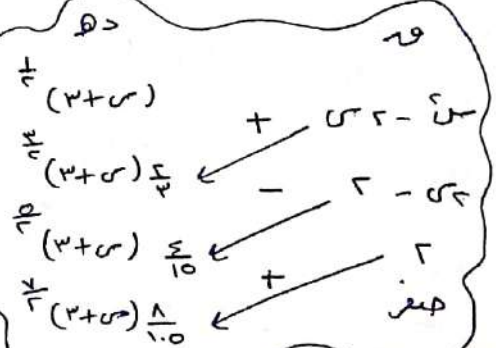 ق	دھ
(س+٣)^{١/٢}
س٢ - ٢ س	+	٢/٣ (س+٣)^{٣/٢}
٢س - ٢	-	٤/١٥ (س+٣)^{٥/٢}
٢	+	٨/١٠٥ (س+٣)^{٧/٢}
صفر